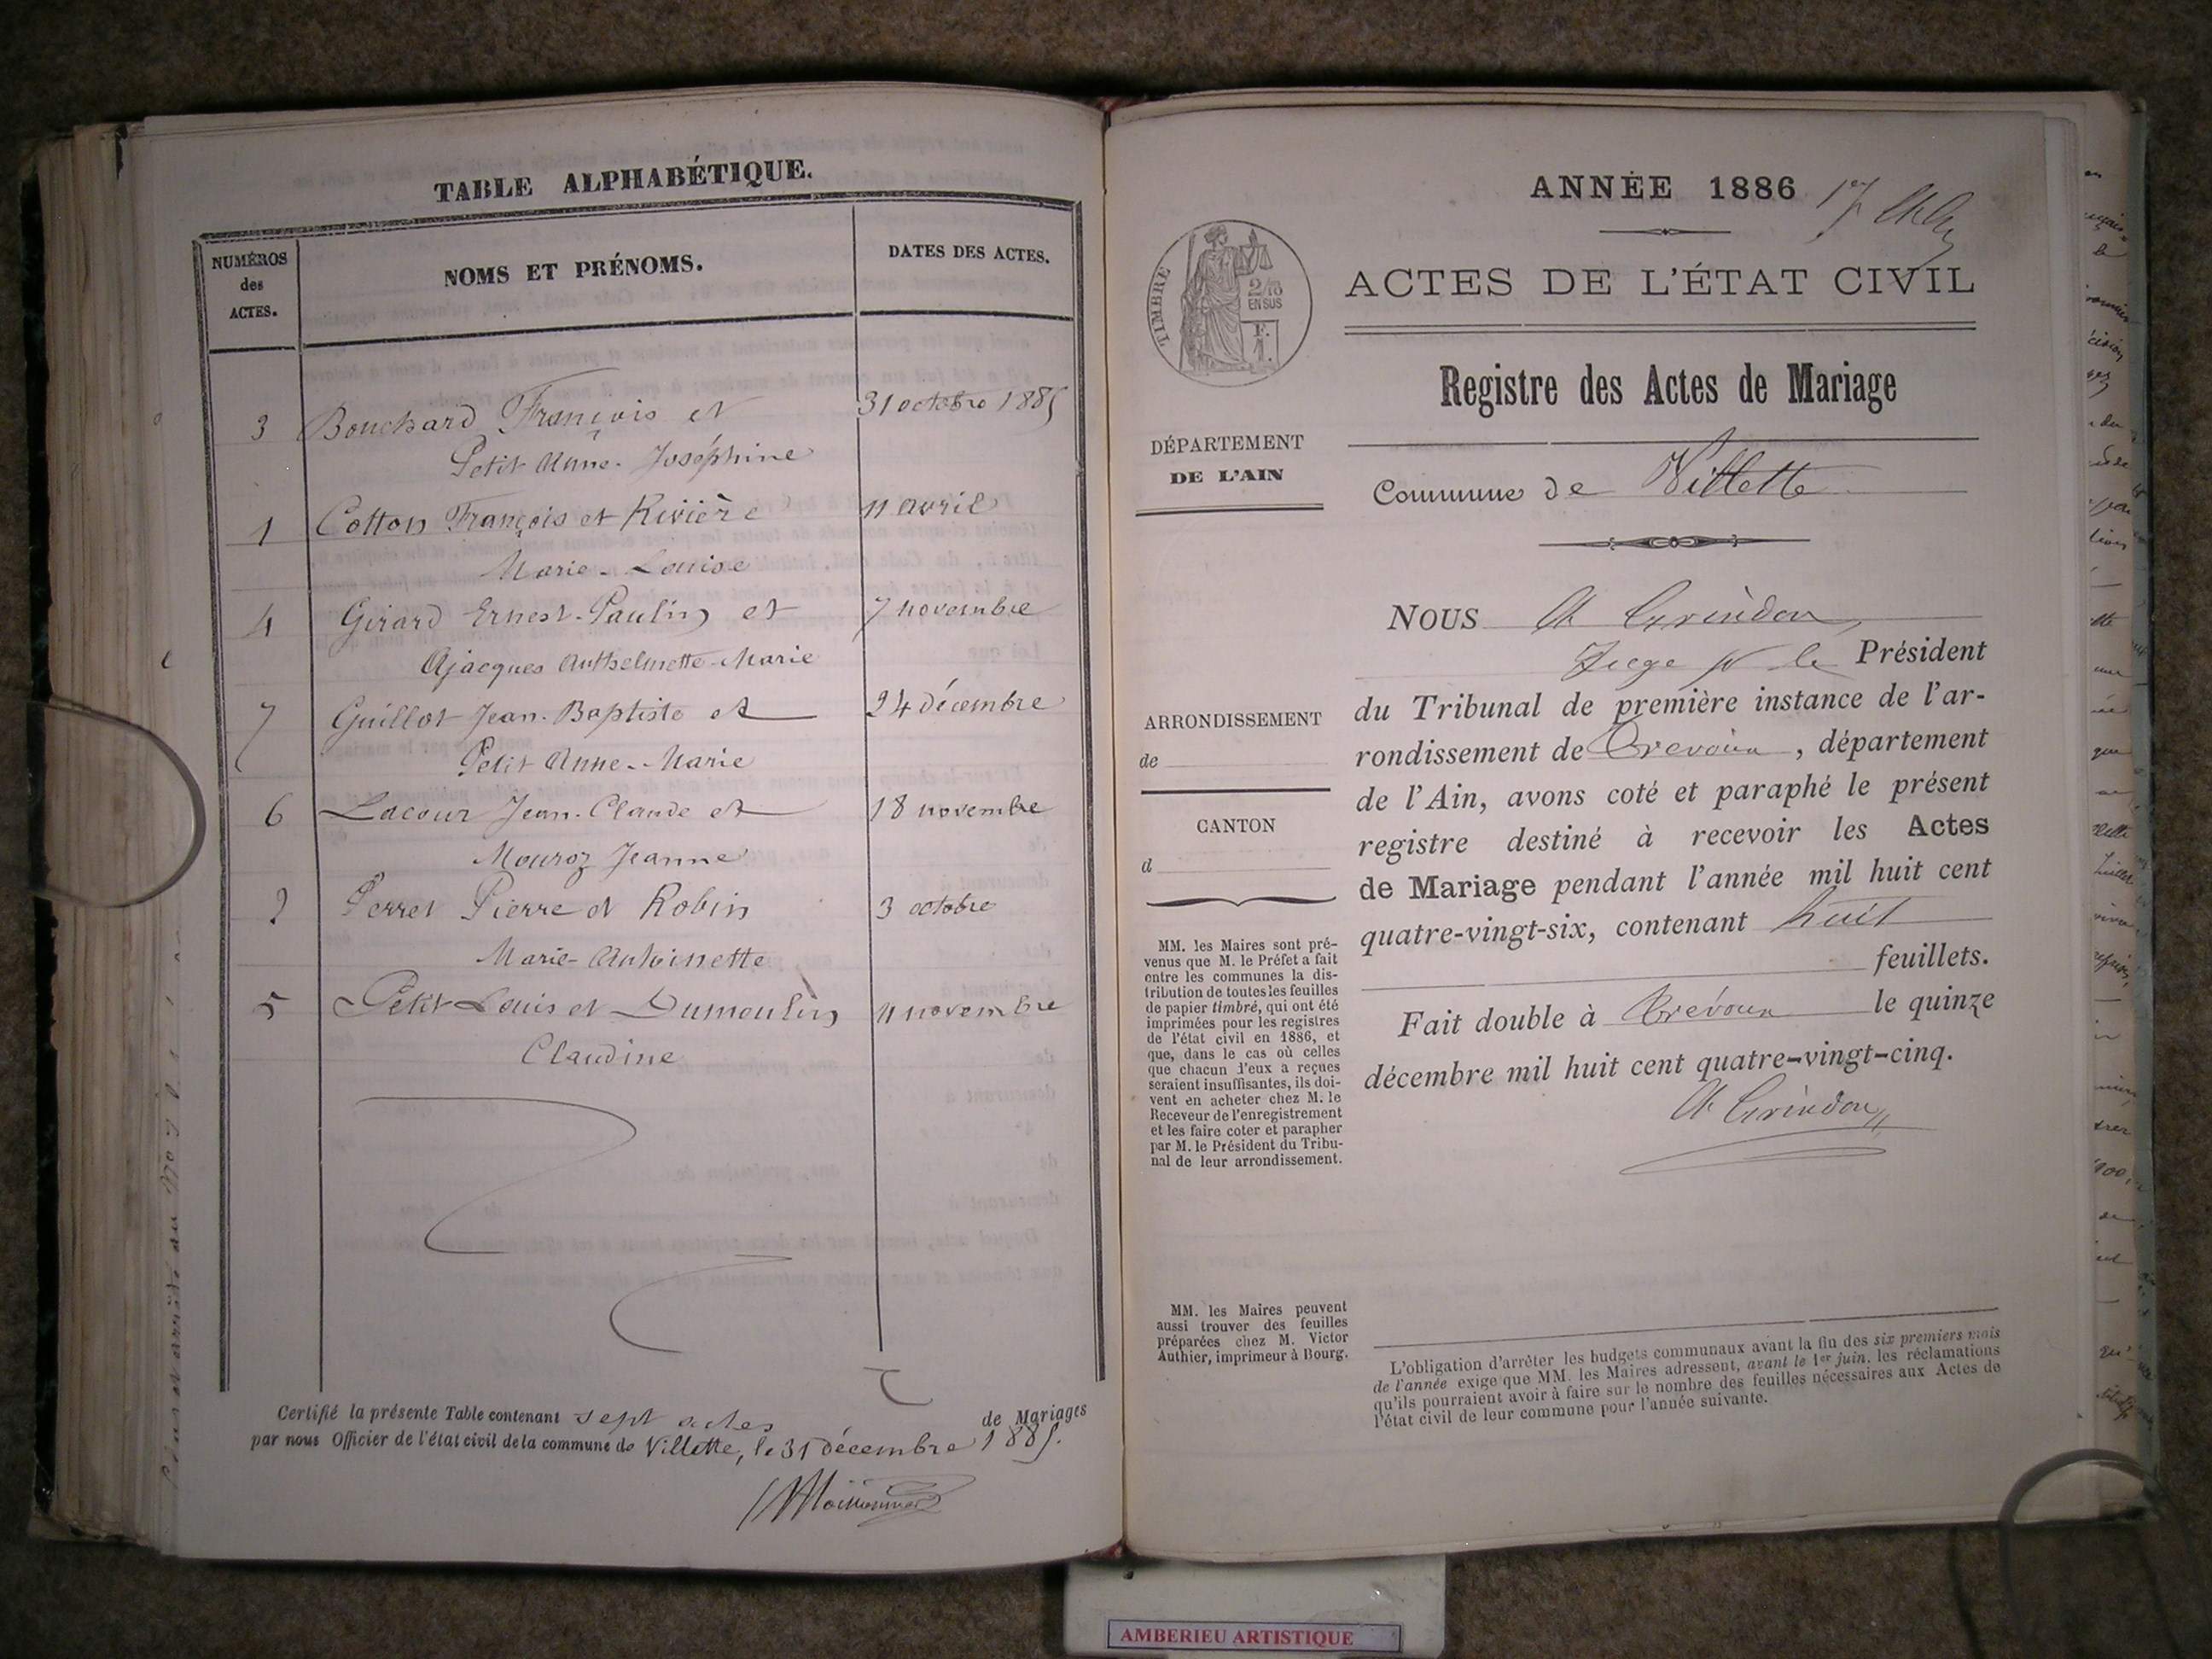 TABLE ALPHABÉTIQUE.
NUMÉROS
des
ACTES.
NOMS ET PRÉNOMS.
DATES DES ACTES.
3 Bouchard François et 31 octobre 1885
Petit Anne-Joséphine
1 Cotton François et Rivière 11 avril
Marie-Louise
4 Girard Ernest-Paulin et 7 novembre
Ajacques Anthelmette-Marie
7 Guillot Jean-Baptiste et 24 décembre
Petit Anne-Marie
6 Lacour Jean-Claude et 18 novembre
Mouroz Jeanne
2 Perret Pierre et Robin 3 octobre
Marie-Antoinette
5 Petit Louis et Dumoulin 11 novembre
Claudine
Certifié la présente Table contenant sept actes de Mariages
par nous Officier de l'état civil de la commune de Villette, le 31 décembre 1885.
ANNÉE 1886
1er
TIMBRE
2/10
EN SUS
F.
1.
ACTES DE L'ÉTAT CIVIL
Registre des Actes de Mariage
DÉPARTEMENT
DE L'AIN
Commune de Villette
ARRONDISSEMENT
de
CANTON
d
MM. les Maires sont pré-
venus que M. le Préfet a fait
entre les communes la dis-
tribution de toutes les feuilles
de papier timbré, qui ont été
imprimées pour les registres
de l'état civil en 1886, et
que, dans le cas où celles
que chacun d'eux a reçues
seraient insuffisantes, ils doi-
vent en acheter chez M. le
Receveur de l'enregistrement
et les faire coter et parapher
par M. le Président du Tribu-
nal de leur arrondissement.
MM. les Maires peuvent
aussi trouver des feuilles
préparées chez M. Victor
Authier, imprimeur à Bourg.
NOUS Ch Grindon,
Juge pr le Président
du Tribunal de première instance de l'ar-
rondissement de Trevoux, département
de l'Ain, avons coté et paraphé le présent
registre destiné à recevoir les Actes
de Mariage pendant l'année mil huit cent
quatre-vingt-six, contenant huit
feuillets.
Fait double à Trévoux le quinze
décembre mil huit cent quatre-vingt-cinq.
Ch Grindon
L'obligation d'arrêter les budgets communaux avant la fin des six premiers mois
de l'année exige que MM. les Maires adressent, avant le 1er juin, les réclamations
qu'ils pourraient avoir à faire sur le nombre des feuilles nécessaires aux Actes de
l'état civil de leur commune pour l'année suivante.
AMBERIEU ARTISTIQUE